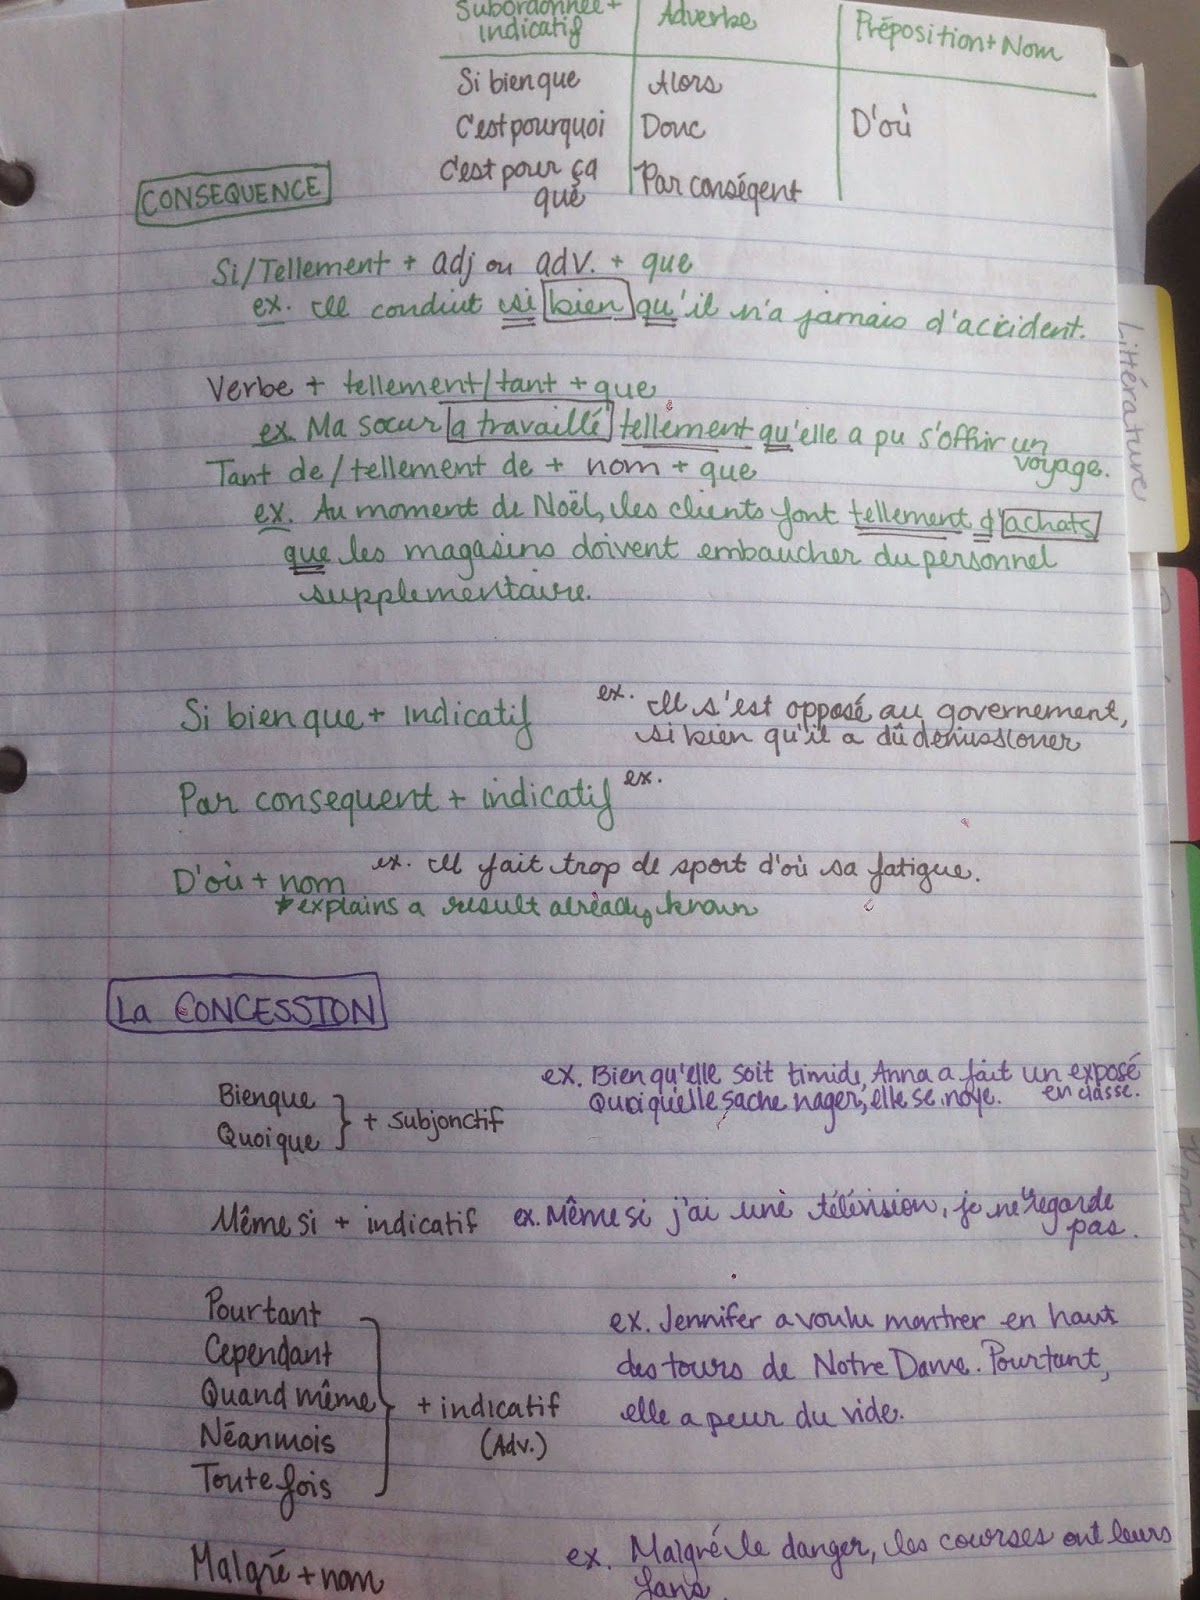 Subordonnée + | Adverbe | Préposition + Nom
indicatif
Si bien que | Alors
C'est pourquoi | Donc | D'où
C'est pour ça | Par conségent
que
CONSEQUENCE
Si/Tellement + adj ou adv. + que
ex. Il conduit si bien qu'il n'a jamais d'accident.
Verbe + tellement/tant + que
ex. Ma sœur a travaillé tellement qu'elle a pu s'offrir un
voyage.
Tant de/tellement de + nom + que
ex. Au moment de Noël, les clients font tellement d'achats
que les magasins doivent embaucher du personnel
supplementaire.
Si bien que + indicatif ex. Il s'est opposé au governement,
si bien qu'il a dû demissioner
Par consequent + indicatif ex.
D'où + nom ex. Il fait trop de sport d'où sa fatigue.
* explains a result already known
La CONCESSION
Bien que
Quoique
+ subjonctif
ex. Bien qu'elle soit timide, Anna a fait un exposé
en classe.
Quoiqu'elle sache nager, elle se noye.
Même si + indicatif ex. Même si j'ai une télévision, je ne regarde
pas.
Pourtant
Cependant
Quand même
Néanmois
Toutefois
+ indicatif
(Adv.)
ex. Jennifer a voulu montrer en haut
des tours de Notre Dame. Pourtant,
elle a peur du vide.
Malgré + nom ex. Malgré le danger, les courses ont leurs
fans.
Littérature